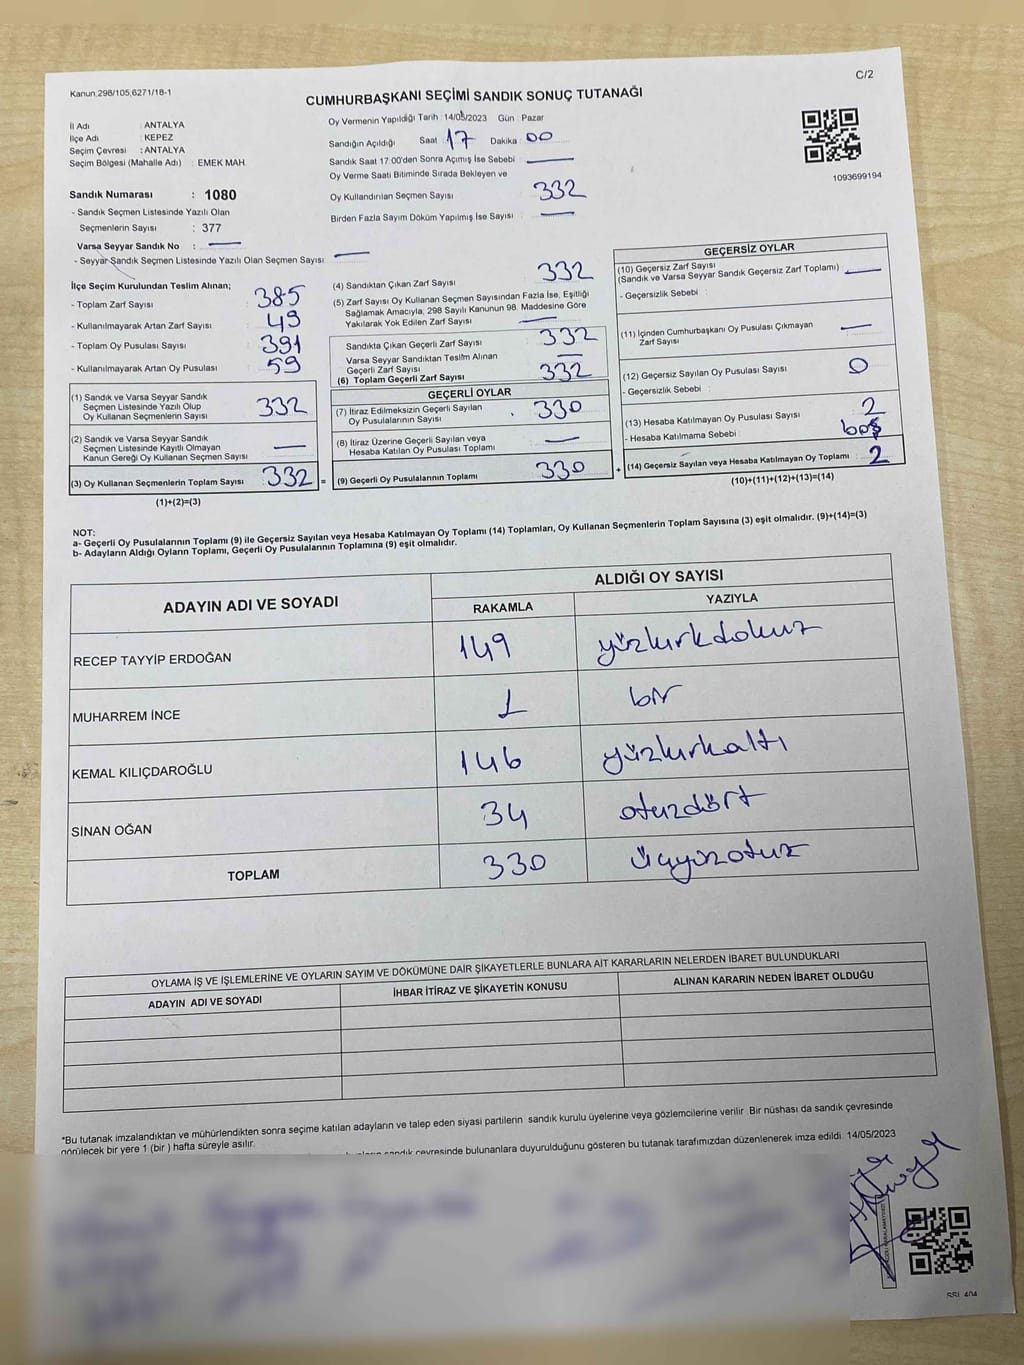 Kanun;298/105,6271/18-1
C/2
CUMHURBAŞKANI SEÇİMİ SANDIK SONUÇ TUTANAĞI
İl Adı : ANTALYA
İlçe Adı : KEPEZ
Seçim Çevresi : ANTALYA
Seçim Bölgesi (Mahalle Adı) : EMEK MAH.
Sandık Numarası : 1080
- Sandık Seçmen Listesinde Yazılı Olan
Seçmenlerin Sayısı : 377
Varsa Seyyar Sandık No :
- Seyyar Sandık Seçmen Listesinde Yazılı Olan Seçmen Sayısı
Oy Vermenin Yapıldığı Tarih : 14/05/2023 Gün : Pazar
Sandığın Açıldığı Saat 17 Dakika : 00
Sandık Saat 17:00'den Sonra Açımış İse Sebebi :
Oy Verme Saati Bitiminde Sırada Bekleyen ve
Oy Kullandırılan Seçmen Sayısı : 332
Birden Fazla Sayım Döküm Yapılmış İse Sayısı :
1093699194
İlçe Seçim Kurulundan Teslim Alınan;
- Toplam Zarf Sayısı : 385
- Kullanılmayarak Artan Zarf Sayısı : 49
- Toplam Oy Pusulası Sayısı : 391
- Kullanılmayarak Artan Oy Pusulası : 59
(1) Sandık ve Varsa Seyyar Sandık
Seçmen Listesinde Yazılı Olup
Oy Kullanan Seçmenlerin Sayısı 332
(2) Sandık ve Varsa Seyyar Sandık
Seçmen Listesinde Kayıtlı Olmayan
Kanun Gereği Oy Kullanan Seçmen Sayısı
(3) Oy Kullanan Seçmenlerin Toplam Sayısı : 332 =
(1)+(2)=(3)
(4) Sandıktan Çıkan Zarf Sayısı : 332
(5) Zarf Sayısı Oy Kullanan Seçmen Sayısından Fazla İse, Eşitliği
Sağlamak Amacıyla, 298 Sayılı Kanunun 98. Maddesine Göre
Yakılarak Yok Edilen Zarf Sayısı :
Sandıkta Çıkan Geçerli Zarf Sayısı : 332
Varsa Seyyar Sandıktan Teslim Alınan
Geçerli Zarf Sayısı
(6) Toplam Geçerli Zarf Sayısı : 332
GEÇERLİ OYLAR
(7) İtiraz Edilmeksizin Geçerli Sayılan
Oy Pusulalarının Sayısı : 330
(8) İtiraz Üzerine Geçerli Sayılan veya
Hesaba Katılan Oy Pusulası Toplamı
(9) Geçerli Oy Pusulalarının Toplamı : 330 +
GEÇERSİZ OYLAR
(10) Geçersiz Zarf Sayısı
(Sandık ve Varsa Seyyar Sandık Geçersiz Zarf Toplamı) :
- Geçersizlik Sebebi :
(11) İçinden Cumhurbaşkanı Oy Pusulası Çıkmayan
Zarf Sayısı
(12) Geçersiz Sayılan Oy Pusulası Sayısı : 0
- Geçersizlik Sebebi :
(13) Hesaba Katılmayan Oy Pusulası Sayısı : 2
- Hesaba Katılmama Sebebi : boş
(14) Geçersiz Sayılan veya Hesaba Katılmayan Oy Toplamı : 2
(10)+(11)+(12)+(13)=(14)
NOT:
a- Geçerli Oy Pusulalarının Toplamı (9) ile Geçersiz Sayılan veya Hesaba Katılmayan Oy Toplamı (14) Toplamları, Oy Kullanan Seçmenlerin Toplam Sayısına (3) eşit olmalıdır. (9)+(14)=(3)
b- Adayların Aldığı Oyların Toplamı, Geçerli Oy Pusulalarının Toplamına (9) eşit olmalıdır.
ADAYIN ADI VE SOYADI
ALDIĞI OY SAYISI
RAKAMLA YAZIYLA
RECEP TAYYİP ERDOĞAN 149 yüzkırkdokuz
MUHARREM İNCE 1 bir
KEMAL KILIÇDAROĞLU 146 yüzkırkaltı
SİNAN OĞAN 34 otuzdört
TOPLAM 330 üçyüzotuz
OYLAMA İŞ VE İŞLEMLERİNE VE OYLARIN SAYIM VE DÖKÜMÜNE DAİR ŞİKAYETLERLE BUNLARA AİT KARARLARIN NELERDEN İBARET BULUNDUKLARI
ADAYIN ADI VE SOYADI İHBAR İTİRAZ VE ŞİKAYETİN KONUSU ALINAN KARARIN NEDEN İBARET OLDUĞU
*Bu tutanak imzalandıktan ve mühürlendikten sonra seçime katılan adayların ve talep eden siyasi partilerin sandık kurulu üyelerine veya gözlemcilerine verilir. Bir nüshası da sandık çevresinde
görülecek bir yere 1 (bir ) hafta süreyle asılır.
sandık çevresinde bulunanlara duyurulduğunu gösteren bu tutanak tarafımızdan düzenlenerek imza edildi. 14/05/2023